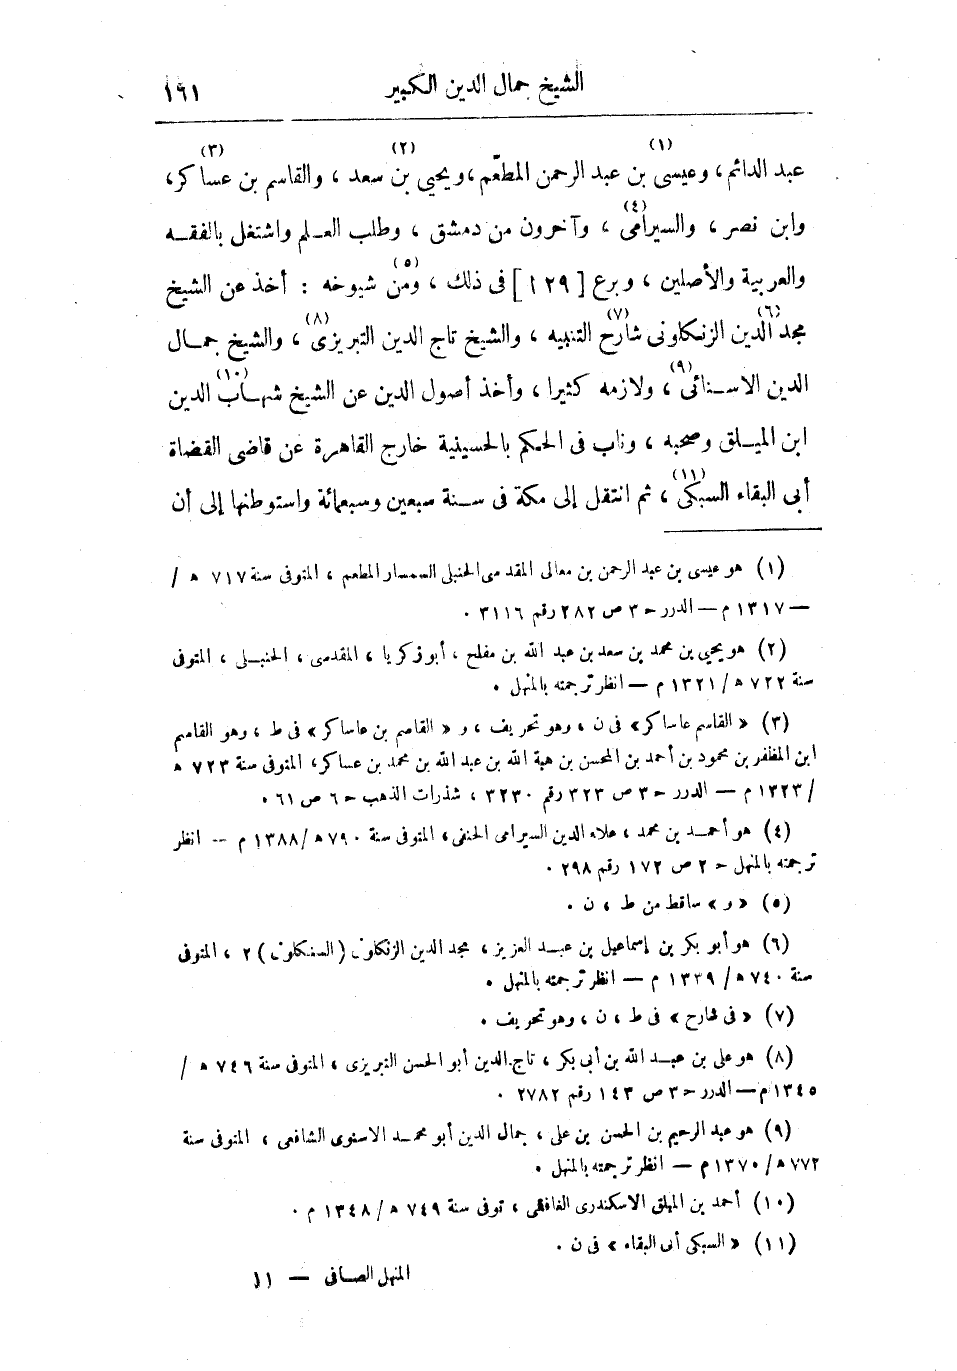 الشيخ جمال الدين الكبير ١٦١
عبد الدائم، وعيسى بن عبد الرحمن المطعّم(١)، ويحيى بن سعد(٢)، والقاسم بن عساكر(٣)،
وابن نصر، والسيرامى(٤)، وآخرون من دمشق، وطلب العلم واشتغل بالفقه
والعربية والأصلين، وبرع [١٢٩] فى ذلك، ومن(٥) شيوخه : أخذ عن الشيخ
مجد الدين الزنكلونى(٦) شارح(٧) التنبيه، والشيخ تاج الدين التبريزى(٨)، والشيخ جمال
الدين الاسنائى(٩)، ولازمه كثيرا، وأخذ أصول الدين عن الشيخ شهاب(١٠) الدين
ابن الميلق وصحبه، وناب فى الحكم بالحسينية خارج القاهرة عن قاضى القضاة
أبى البقاء السبكى(١١)، ثم انتقل إلى مكة فى سنة سبعين وسبعمائة واستوطنها إلى أن
(١) هو عيسى بن عبد الرحمن بن معالى المقدسى الحنبلى السمسار المطعم، المتوفى سنة ٧١٧ ه /
— ١٣١٧ م — الدرر ح ٣ ص ٢٨٢ رقم ٣١١٦ .
(٢) هو يحيى بن محمد بن سعد بن عبد الله بن مفلح، أبو زكريا، المقدسى، الحنبلى، المتوفى
سنة ٧٢٢ ه / ١٣٢١ م — انظر ترجمته بالمنهل .
(٣) « القاسم عاساكر » فى ن، وهو تحريف، و « القاصم بن عاساكر » فى ط، وهو القاسم
ابن المظفر بن محمود بن أحمد بن المحسن بن هبة الله بن عبد الله بن محمد بن عساكر، المتوفى سنة ٧٢٣ ه
/ ١٣٢٣ م — الدرر ح ٣ ص ٣٢٣ رقم ٣٢٣٠، شذرات الذهب ح ٦ ص ٦١ .
(٤) هو أحمد بن محمد، علاء الدين السيرامى الحنفى، المتوفى سنة ٧٩٠ ه / ١٣٨٨ م — انظر
ترجمته بالمنهل ح ٢ ص ١٧٢ رقم ٢٩٨ .
(٥) « و » ساقط من ط، ن .
(٦) هو أبو بكر بن إسماعيل بن عبد العزيز، مجد الدين الزنكلونى (السنكلونى) ٢، المتوفى
سنة ٧٤٠ ه / ١٣٣٩ م — انظر ترجمته بالمنهل .
(٧) « فى شارح » فى ط، ن، وهو تحريف .
(٨) هو على بن عبد الله بن أبى بكر، تاج الدين أبو الحسن التبريزى، المتوفى سنة ٧٤٦ ه /
١٣٤٥ م — الدرر ح ٣ ص ١٤٣ رقم ٢٧٨٢ .
(٩) هو عبد الرحيم بن الحسن بن على، جمال الدين أبو محمد الاسنوى الشافعى، المتوفى سنة
٧٧٢ ه / ١٣٧٠ م — انظر ترجمته بالمنهل .
(١٠) أحمد بن الميلق الاسكندرى الفافقى، توفى سنة ٧٤٩ ه / ١٣٤٨ م .
(١١) « السبكى أبى البقاء » فى ن .
المنهل الصافى — ١١